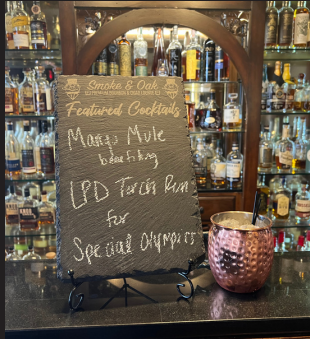 Smoke & Oak
Featured Cocktails
Mango Mule
benefiting
LPD Torch Run
for
Special Olympics